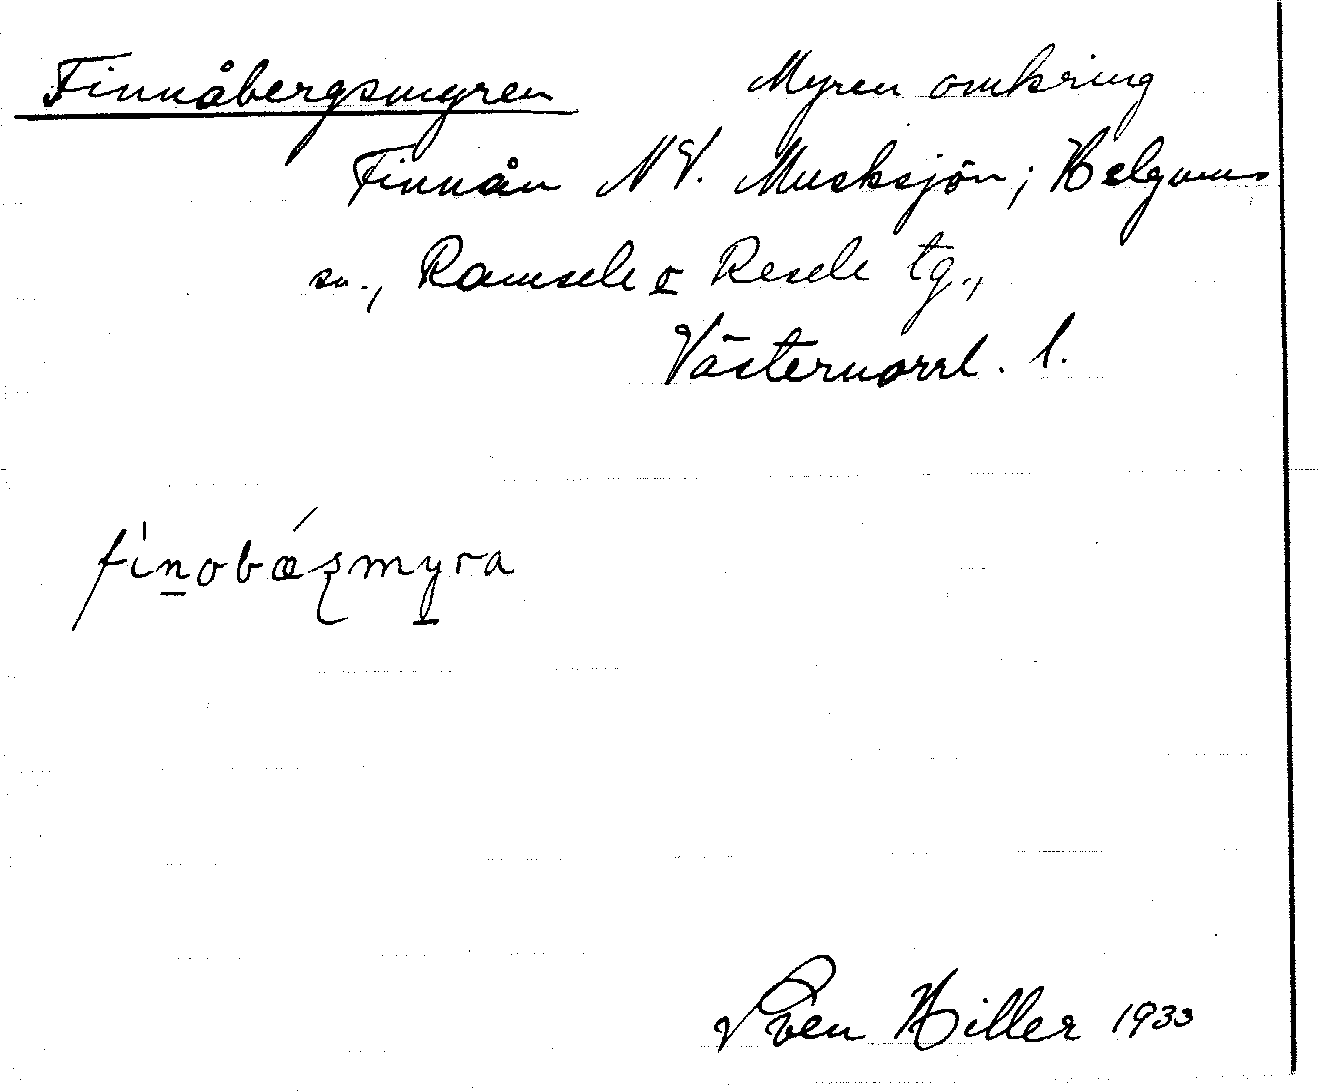 Finnåbergsmyren Myren omkring
Finnån NV. Musksjön; Helgums
sn., Ramsele o Resele tg.,
Västernorrl. l.
fìnobǽʂmyra
Sven Hiller 1933